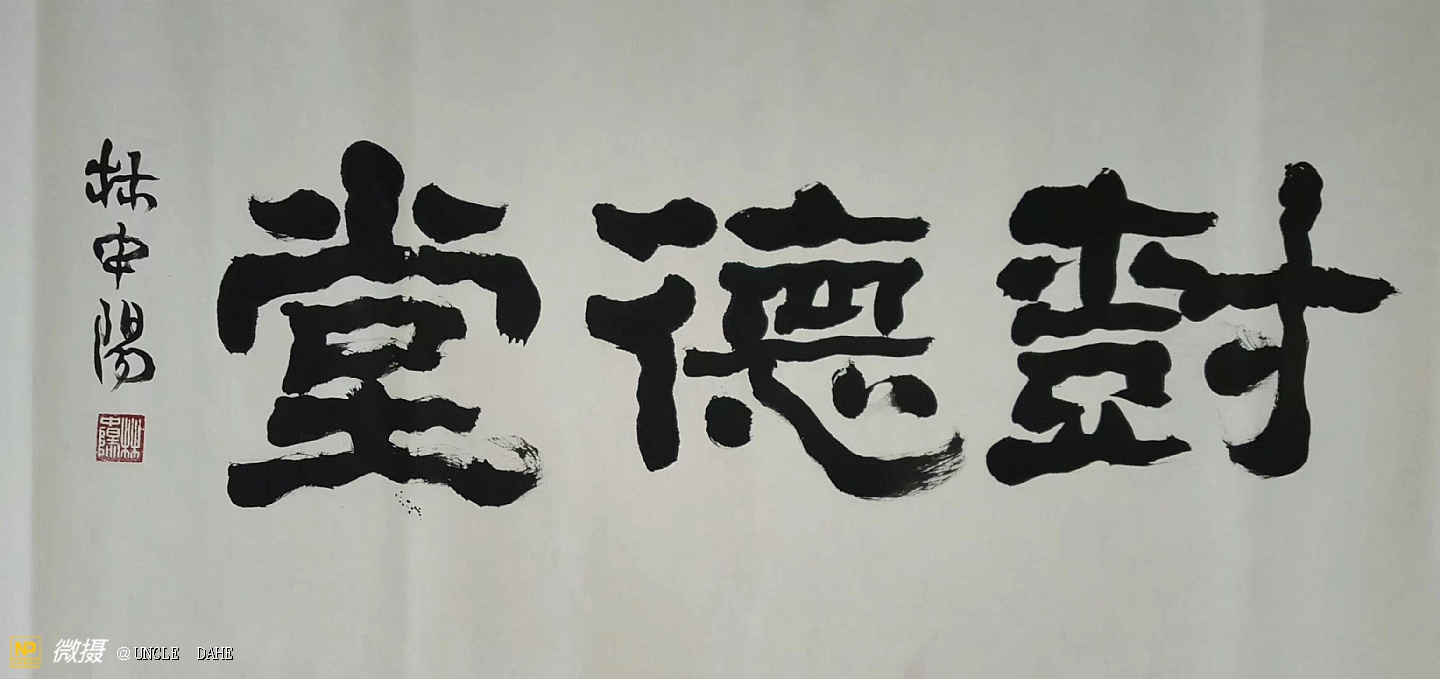 樹德堂
林申陽
林申陽
微摄 @UNCLE DAHE